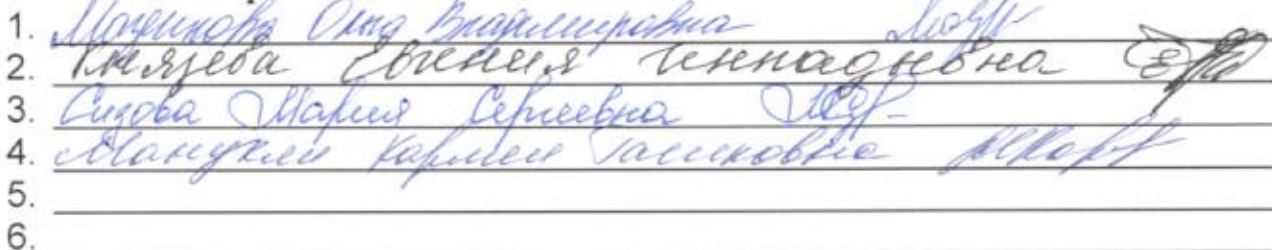 1. Ольга Владимировна
2. Князева Евгения Геннадьевна
3. Сизова Мария Сергеевна
4. Манукян Кармен
5.
6.